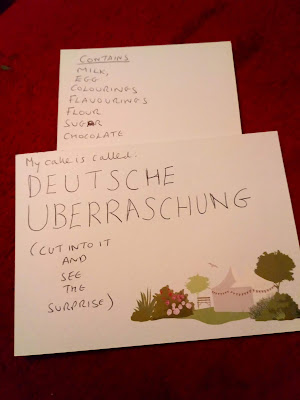 CONTAINS
MILK,
EGG
COLOURINGS
FLAVOURINGS
FLOUR
SUGAR
CHOCOLATE
My cake is called:
DEUTSCHE
UBERRASCHUNG
(CUT INTO IT
AND
SEE
THE
SURPRISE)